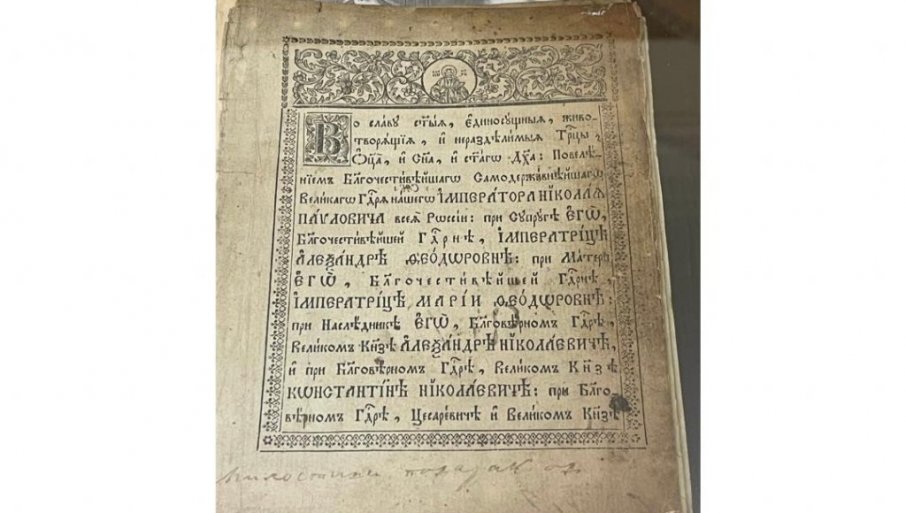 Во славу ст҃ыѧ, є҆диносꙋщныѧ, живо-
творѧщїѧ, и҆ нераздѣлимыѧ Трⷪ҇цы,
Ѻ҆ц҃а, и҆ Сн҃а, и҆ ст҃агѡ Дх҃а: Повелѣ-
нїемъ Бл҃гочестивѣйшагѡ Самодержавнѣйшагѡ
Великагѡ Гдⷭ҇рѧ нашегѡ І҆МПЕРАТОРА НІКОЛАѦ
ПАѴЛОВИЧА всеѧ̀ Рѡссїи: при Сꙋпрꙋгѣ Є҆ГѠ̀,
Бл҃гочестивѣйшей Гдⷭ҇рнѣ, І҆МПЕРАТРІЦѢ
АЛЕѮАНДРѢ ѲЕѺДѠРОВНѢ: при Матери
Є҆ГѠ̀, Бл҃гочестивѣйшей Гдⷭ҇рнѣ,
І҆МПЕРАТРІЦѢ МАРІИ ѲЕѺДѠРОВНѢ:
при Наслѣдникѣ Є҆ГѠ̀, Бл҃говѣрномъ Гдⷭ҇рѣ,
Великомъ Кн҃зѣ АЛЕѮАНДРѢ НІКОЛАЕВИЧѢ,
и҆ при Бл҃говѣрномъ Гдⷭ҇рѣ, Великомъ Кн҃зѣ
КѠНСТАНТІНѢ НІКОЛАЕВИЧѢ: при Бл҃го-
вѣрномъ Гдⷭ҇рѣ, Цесаревичѣ и҆ Великомъ Кн҃зѣ